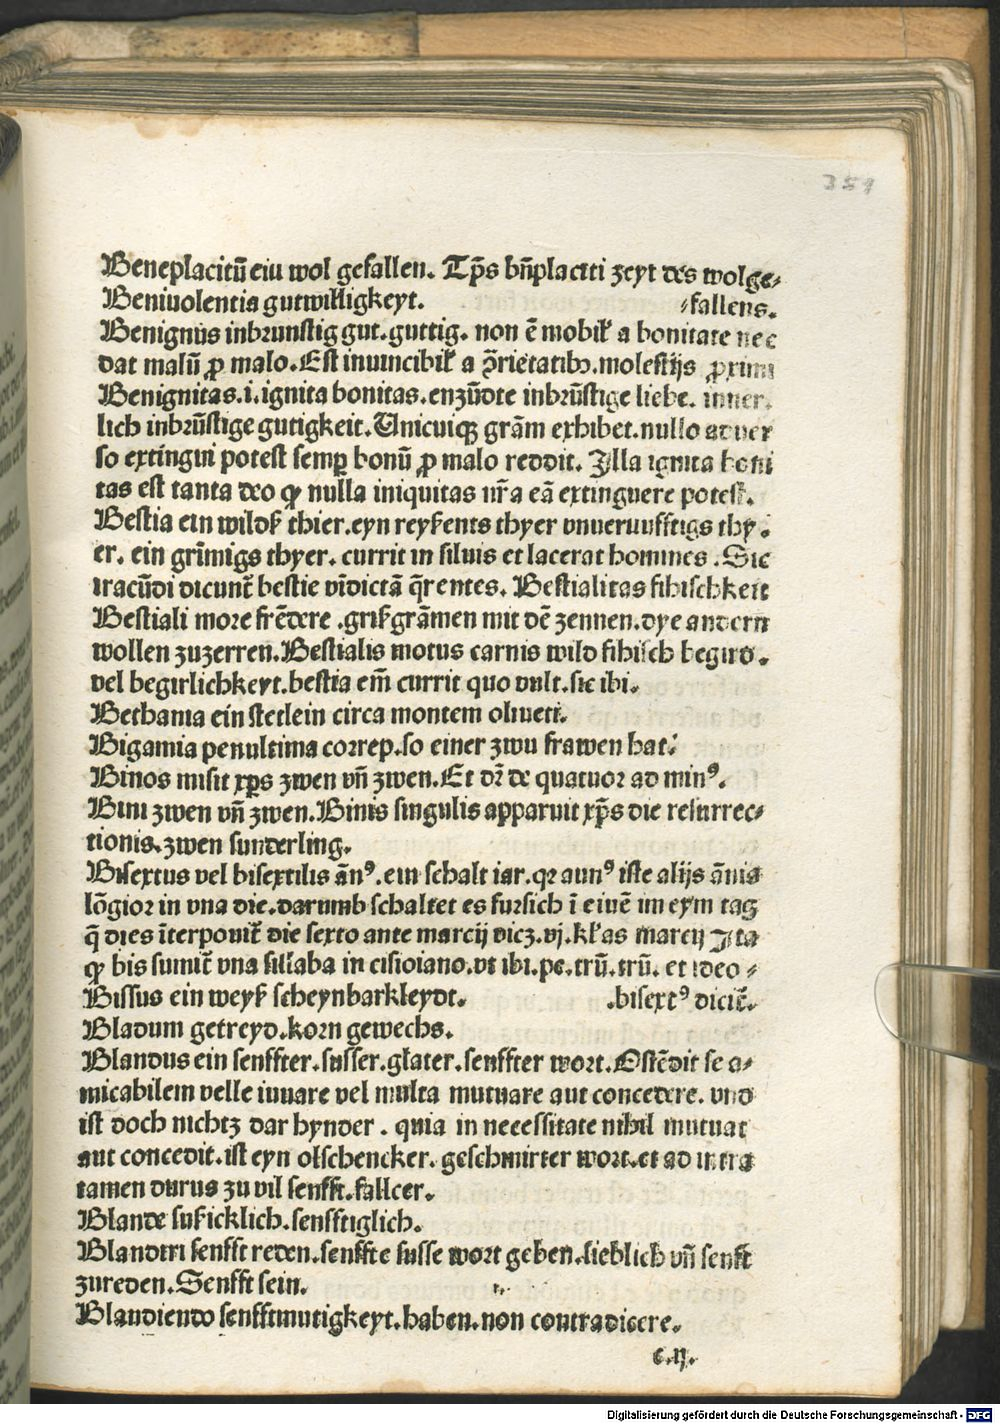 359
Beneplacitū eiu wol gefallen. Tp̄s bn̄placiti zeyt des wolge⸗
Beniuolentia gutwilligkeyt. ⸗fallens.
Benignus inbrunstig gut. guttig. non ē mobil̕ a bonitate nec
dat malū ꝓ malo. Est inuincibil̕ a molestijs ꝓximi
Benignitas .i. ignita bonitas. enzūdte inbrūstige liebe. inner.
lich inbrūstige gutigkeit. Unicuiqꝫ grām exhibet. nullo aduer
so extingui potest semꝑ bonū ꝓ malo reddit. Illa ignita boni
tas est tanta deo ꝙ nulla iniquitas nr̄a eā extinguere potest.
Bestia ein wildß thier. eyn reyßents thyer vnuernufftigs thy.
er. ein grīmigs thyer. currit in siluis et lacerat homines. Sic
iracūdi dicunt̄ bestie vīdictā q̄rentes. Bestialitas fihischkeit
Bestiali more frēdere. grißgrāmen mit dē zennen. dye andern
wollen zuzerren. Bestialis motus carnis wild fihisch begird.
vel begirlichkeyt. bestia em̄ currit quo vult. sic ibi.
Bethania ein stetlein circa montem oliueti.
Bigamia penultima correp. so einer zwu frawen hat.
Binos misit xp̄s zwen vn̄ zwen. Et dr̄ de quatuor ad minꝰ.
Bini zwen vn̄ zwen. Binis singulis apparuit xp̄s die resurrec⸗
tionis. zwen sunderling.
Bisextus vel bisextilis ānꝰ. ein schalt iar. qꝛ annꝰ iste alijs ānis
lōgior in vna die. darumb schaltet es fursich ī einē im eym tag
q̄ dies īterponit̄ die sexto ante marcij dicꝫ .vj. kl̕as marcij Ita
ꝙ bis sumit̄ vna sillaba in cisioiano. vt ibi. pe. trū. trū. et ideo⸗
Bissus ein weyß scheynbarkleydt. .bisextꝰ dicit̄.
Bladum getreyd. korn gewechs.
Blandus ein senffter. susser. glater. senffter wort. Ostēdit se a⸗
micabilem velle iuuare vel multa mutuare aut concedere. vnd
ist doch nichtz dar hynder. quia in necessitate nihil mutuat
aut concedit. ist eyn olschencker. geschmirter wort. et ad intra
tamen durus zu vil senfft. fallcer.
Blande sußicklich. senfftiglich.
Blandiri senfft reden. senffte susse wort geben. lieblich vn̄ senfft
zureden. Senfft sein.
Blandiendo senfftmutigkeyt. haben. non contradicere.
c.ij.
Digitalisierung gefördert durch die Deutsche Forschungsgemeinschaft - DFG